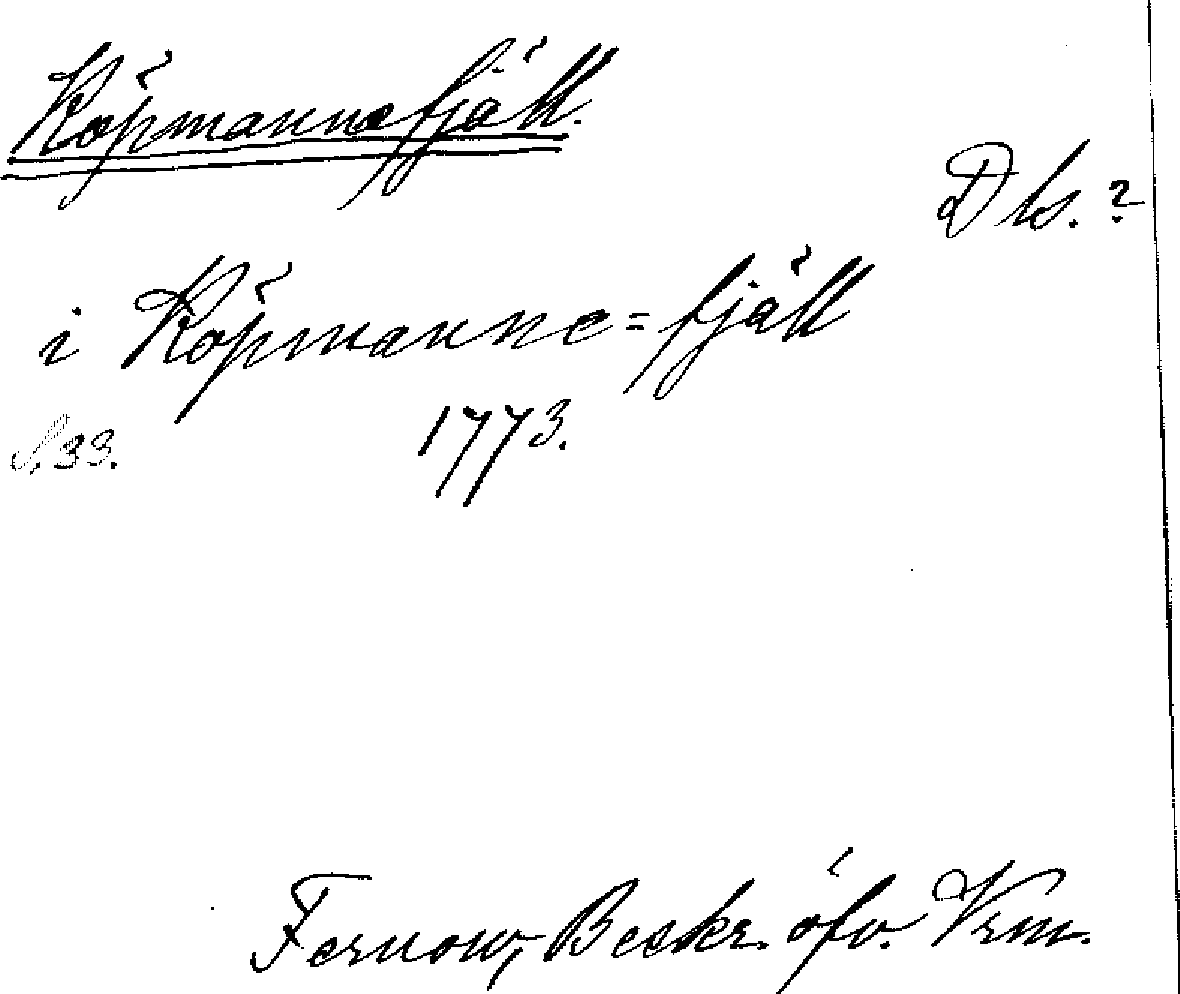 Köpmannefjäll.
Dls. ?
i Köpmanne=fjäll
S. 33. 1773.
Fernow, Beskr. öfv. Vrm.